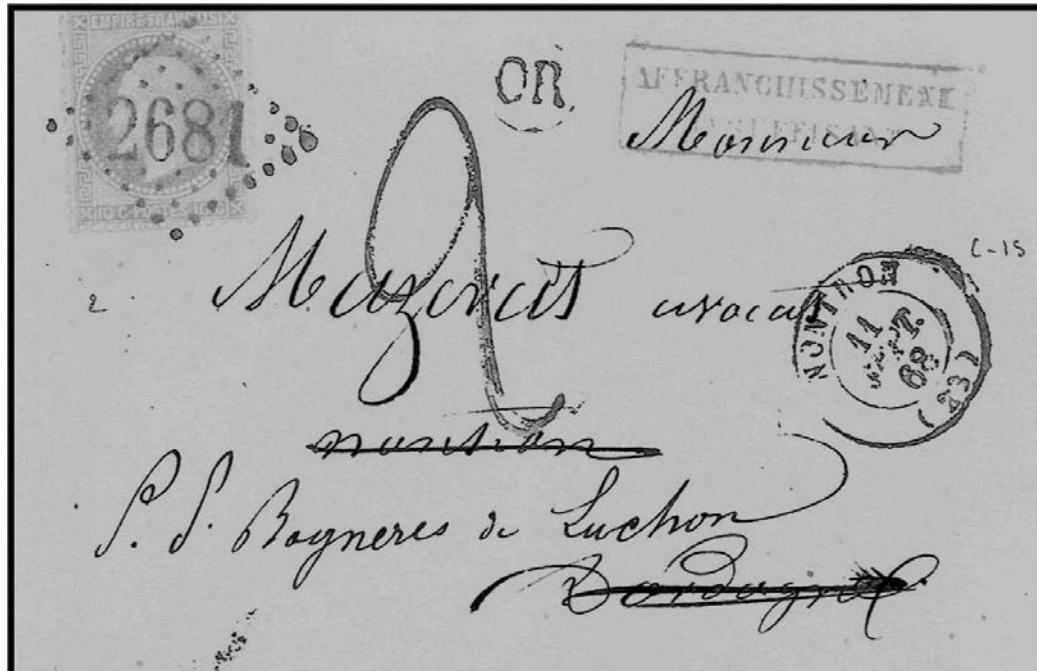 EMPIRE FRANÇAIS
2681
10 C. POSTES 10 C.
OR.
AFFRANCHISSEMENT
INSUFFISANT
Monsieur
2
Mazerat avocat
2
NONTRON
11
SEPT.
68
(23)
C-15
nontron
P. P. Bagneres de Luchon
Dordogne